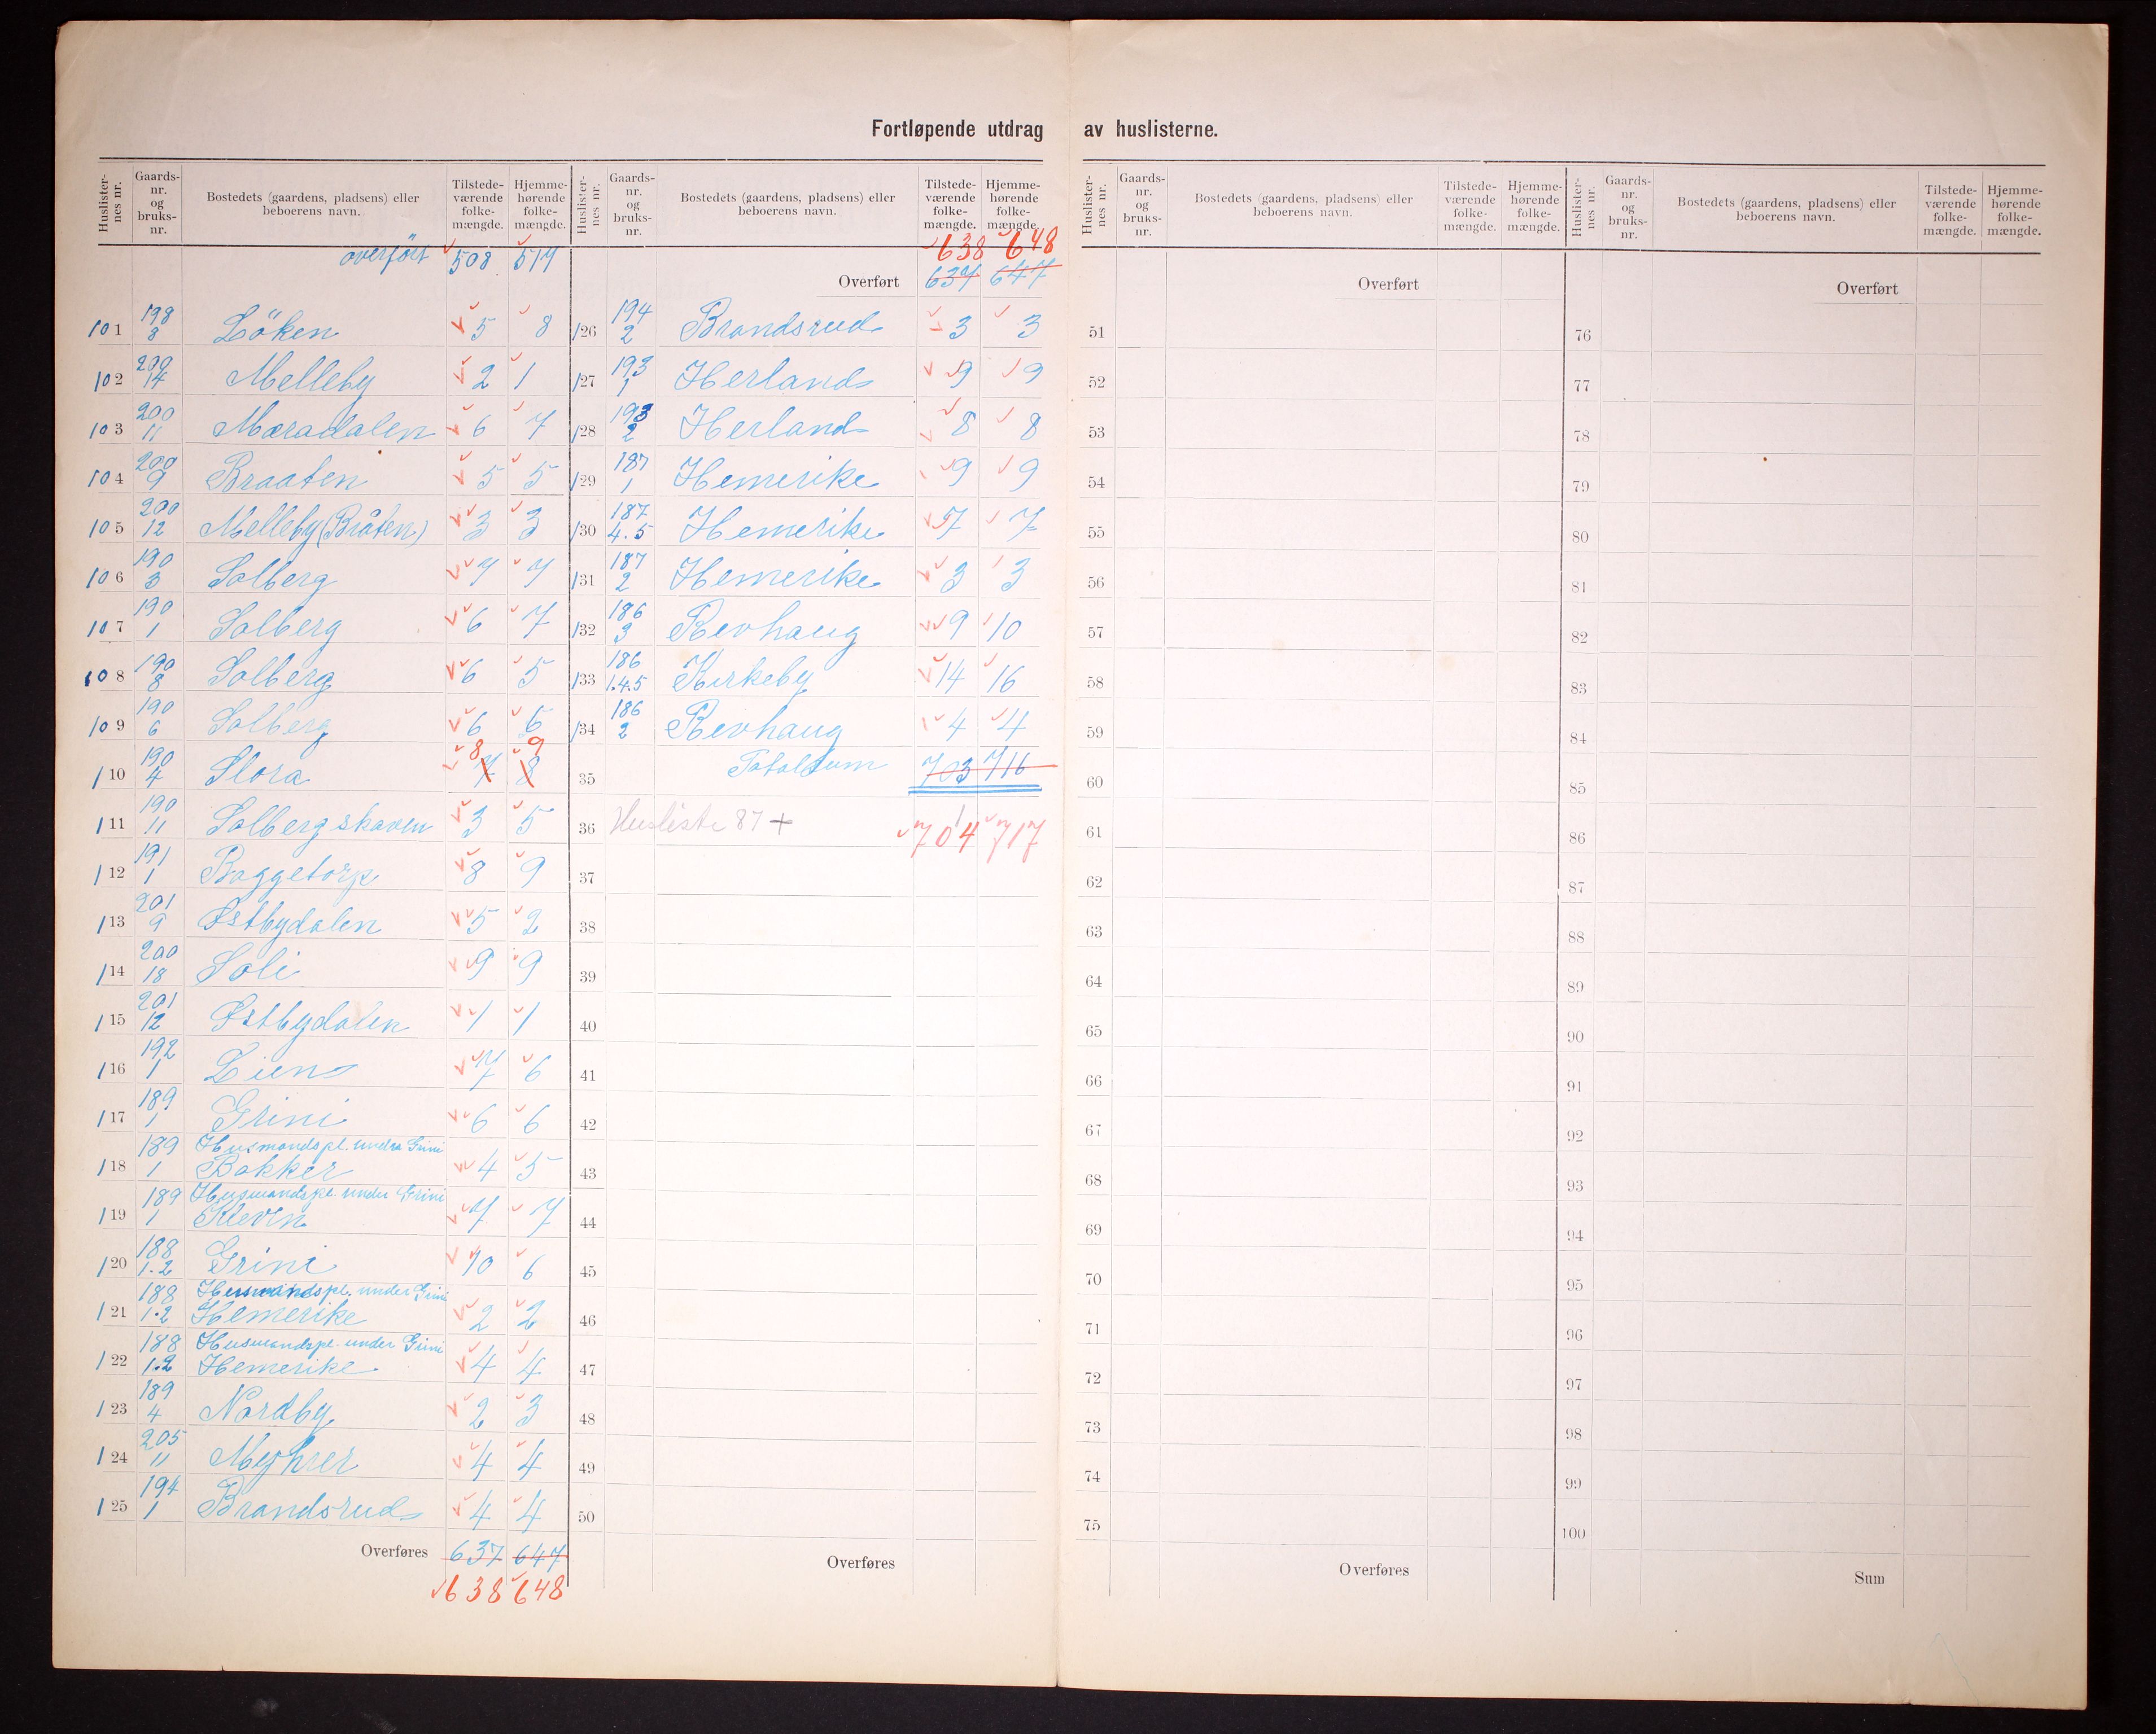 Fortløpende utdrag av huslisterne.
Huslister-nes nr. Gaards-nr. og bruks-nr. Bostedets (gaardens, pladsens) eller beboerens navn. Tilstede-værende folke-mængde. Hjemme-hørende folke-mængde.
overført 508 517
101 198 8 Löken 5 8
102 200 14 Melleby 2 1
103 200 11 Mæradalen 6 7
104 200 9 Braaten 5 5
105 200 12 Melleby (Bråten) 3 3
106 190 3 Solberg 7 7
107 190 1 Solberg 6 7
108 190 8 Solberg 6 5
109 190 6 Solberg 6 6
8 9
110 190 4 Slora 7 8
111 190 11 Solbergskoven 3 5
112 191 1 Baggetorp 8 9
113 201 9 Østbydalen 5 2
114 200 18 Soli 9 9
115 201 12 Østbydalen 1 1
116 192 1 Lien 7 6
117 189 1 Grini 6 6
118 189 1 Husmandspl. under Grini
Bakker 4 5
119 189 1 Husmandspl. under Grini
Kleven 7 7
120 188 1.2 Grini 10 6
121 188 1.2 Husmandspl. under Grini
Hemerike 2 2
122 188 1.2 Husmandspl. under Grini
Hemerike 4 4
123 189 4 Nordby 2 3
124 205 11 Myhrer 4 4
125 194 1 Brandsrud 4 4
Overføres 637 647
638 648
Huslister-nes nr. Gaards-nr. og bruks-nr. Bostedets (gaardens, pladsens) eller beboerens navn. Tilstede-værende folke-mængde. Hjemme-hørende folke-mængde.
638 648
Overført 637 647
126 194 2 Brandsrud 3 3
127 193 1 Herland 9 9
128 193 2 Herland 8 8
129 187 1 Hemerike 9 9
130 187 4.5 Hemerike 7 7
131 187 2 Hemerike 3 3
132 186 3 Revhaug 9 10
133 186 1.4.5 Kirkeby 14 16
134 186 2 Revhaug 4 4
35 Totalsum 703 716
36 Husliste 87 + 704 717
37
38
39
40
41
42
43
44
45
46
47
48
49
50
Overføres
Huslister-nes nr. Gaards-nr. og bruks-nr. Bostedets (gaardens, pladsens) eller beboerens navn. Tilstede-værende folke-mængde. Hjemme-hørende folke-mængde.
Overført
51
52
53
54
55
56
57
58
59
60
61
62
63
64
65
66
67
68
69
70
71
72
73
74
75
Overføres
Huslister-nes nr. Gaards-nr. og bruks-nr. Bostedets (gaardens, pladsens) eller beboerens navn. Tilstede-værende folke-mængde. Hjemme-hørende folke-mængde.
Overført
76
77
78
79
80
81
82
83
84
85
86
87
88
89
90
91
92
93
94
95
96
97
98
99
100
Sum